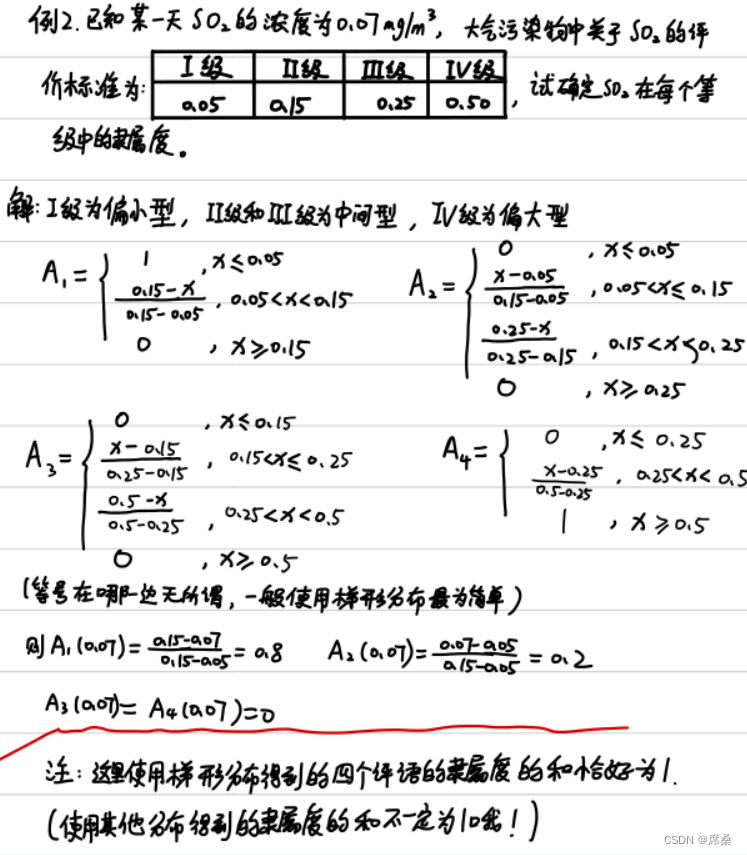 例2.已知某一天SO₂的浓度为0.07mg/m³，大气污染物中关于SO₂的评
价标准为: I级 II级 III级 IV级 ，试确定SO₂在每个等
0.05 0.15 0.25 0.50
级中的隶属度。
解: I级为偏小型，II级和III级为中间型，IV级为偏大型
A₁ = { 1 , x≤0.05
(0.15-x)/(0.15-0.05) , 0.05<x<0.15
0 , x≥0.15
A₂ = { 0 , x≤0.05
(x-0.05)/(0.15-0.05) , 0.05<x≤0.15
(0.25-x)/(0.25-0.15) , 0.15<x≤0.25
0 , x≥0.25
A₃ = { 0 , x≤0.15
(x-0.15)/(0.25-0.15) , 0.15<x≤0.25
(0.5-x)/(0.5-0.25) , 0.25<x<0.5
0 , x≥0.5
A₄ = { 0 , x≤0.25
(x-0.25)/(0.5-0.25) , 0.25<x<0.5
1 , x≥0.5
(等号在哪一边无所谓，一般使用梯形分布最为简单)
则A₁(0.07)= (0.15-0.07)/(0.15-0.05) = 0.8 A₂(0.07)= (0.07-0.05)/(0.15-0.05) = 0.2
A₃(0.07)= A₄(0.07)=0
注: 这里使用梯形分布得到的四个评语的隶属度的和恰好为1.
(使用其他分布得到的隶属度的和不一定为1哦!)
CSDN @席桑